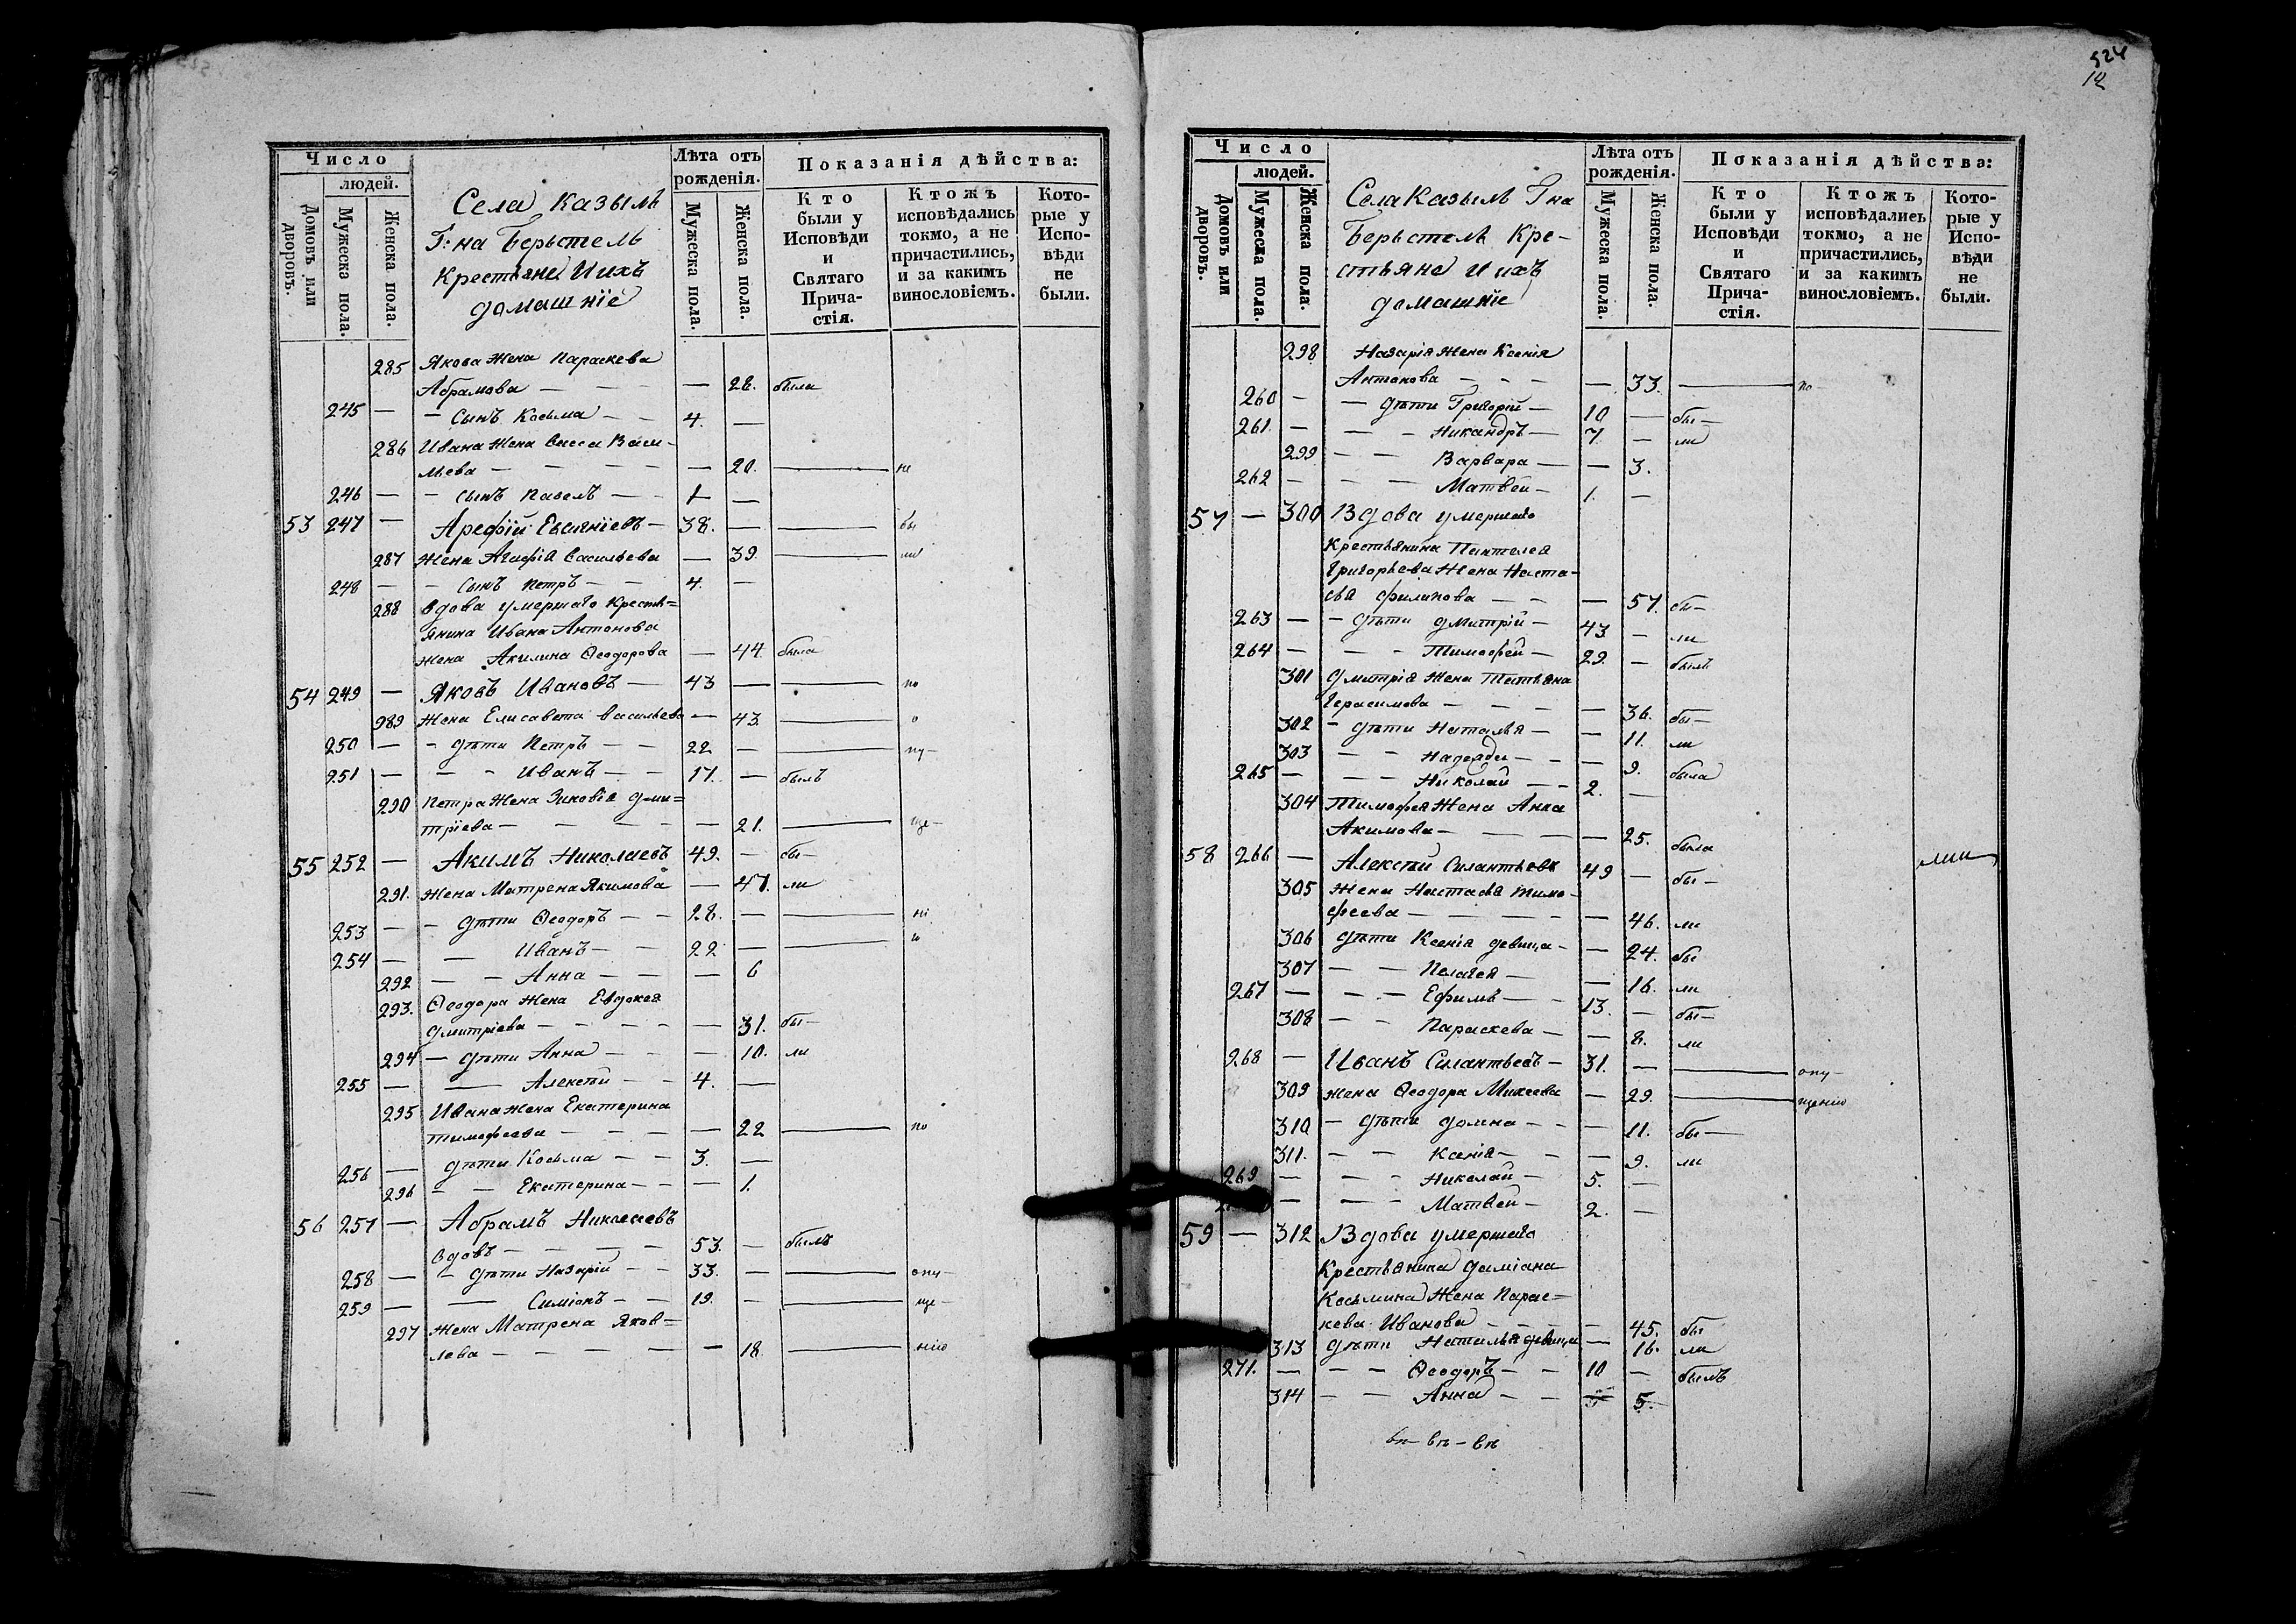 Число
людей.
Домовъ или дворовъ.
Мужеска пола.
Женска пола.
Села Казыль
Г: на Берьстель
Крестьяне и ихъ
домашнїе
Лѣта отъ рожденія.
Мужеска пола.
Женска пола.
Показанія дѣйства:
Кто были у Исповѣди и Святаго Прича-стія.
Ктожъ исповѣдались токмо, а не причастились, и за какимъ винословіемъ.
Кото-рые у Испо-вѣди не были.
285 Якова жена Параскева
Абрамова — — — — 28. была
245 — — Сынъ Косьма — — 4. —
286 Ивана жена Васса Васи-
льева — — — — — 20. — не
246 — — сынъ Павелъ — — 1 —
53 247 — Арефїй — 38. — — бы
287 жена Агафїя Васильева — 39 — ли
248 — — Сынъ Петръ — — 4. —
288 вдова умершаго кресть=
янина Ивана Антонова
жена Акилина Ѳеодорова — 44. была
54 249 — Яковъ Ивановъ — 43 — — по
289 жена Елисавета Васильева — 43. — о
250 — — дѣти Петръ — — 22 — — пу—
251 — — — Иванъ — — 17. — былъ
290 Петра жена Зиновїя Дми=
трїева — — — — — 21. — ще—
55 252 — Акимъ Николаевъ 49. — бы—
291. жена Матрена Якимова — 47. ли
253 — — дѣти Ѳеодоръ — — 28. — — нї
254 — — Иванъ — — 22 — — ю
292 — — Анна — — — 6
293. Ѳеодора жена Евдокея
Дмитрїева — — — — — 31. бы—
294 — дѣти Анна — — — 10. ли
255 — — Алексѣй — — 4. —
295 Ивана жена Екатерина
Тимофеева — — — — 22 — по
256 — дѣти Косьма — — 3. —
296 — — Екатерина — — — 1.
56 257 — Абрамъ Николаевъ
вдовъ — — — — 53. — былъ
258 — — дѣти Назарїй — — 33. — — опу—
259 — — Симїонъ — — 19. — — ще—
297 жена Матрена Яков=
лева — — — — — 18. — нїю
524
12
Число
людей.
Домовъ или дворовъ.
Мужеска пола.
Женска пола.
Села Казыль Г на
Берьстель Кре-
стьяне и ихъ
домашнїе
Лѣта отъ рожденія.
Мужеска пола.
Женска пола.
Показанія дѣйства:
Кто были у Исповѣди и Святаго Прича-стія.
Ктожъ исповѣдались токмо, а не причастились, и за какимъ винословіемъ.
Кото-рые у Испо-вѣди не были.
298 Назарїя жена Ксенїя
Антонова — — — — 33. — по
260 — — дѣти Григорїй — 10 — бы—
261. — — — Никандръ — 7. — ли
299 — — Варвара — — 3.
262 — — — Матвѣй — 1. —
57 — 300 Вдова умершаго
крестьянина Пантелея
Григорьева жена Наста-
сья Филипова — — — 57. бы—
263 — — дѣти Дмитрїй — 43 — ли
264 — — — Тимофей — 29. — былъ
301 Дмитрїя жена Татьяна
Герасимова — — — — 36. бы—
302 — дѣти Наталья — — 11. ли
303 — — Надежда — — — 9. была
265 — — — Николай — — 2. —
304 Тимофея жена Анна
Акимова — — — — 25. была
58 266 — Алексѣй Силантьевъ 49 — бы— ли
305 жена Настасья Тимо-
феева — — — — — 46. ли
306 дѣти Ксенїя девица — — 24. бы
307 — — Пелагея — — 16. ли
267 — — — Ефимъ — — 13. — бы—
308 — — Параскева — — 8. ли
268 — Иванъ Силантьевъ — 31. — — опу—
309 жена Ѳеодора Михеева — 29. — щенїю
310 — дѣти Домна — — — 11. бы—
311. — — Ксенїя — — — 9. ли
269 — — — Николай — 5. —
— — — Матвей — 2. —
59 — 312 Вдова умершаго
крестьянина Дамїана
Косьмина жена Парас-
кева Иванова — — — — 45. бы
313 дѣти Наталья девица — 16. ли
271. — — — Ѳеодоръ — — 10 — былъ
314 — — Анна — — 5.